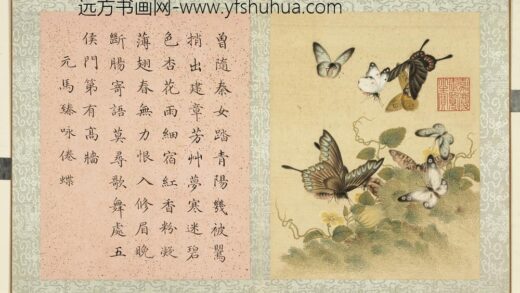 远方书画网-www.yfshuhua.com
曾隨秦女踏青陽幾被鸎
捎出建章芳艸夢寒迷碧
色杏花雨細宿紅香粉凝
薄翅春無力恨入修眉晚
斷腸寄語莫尋歌舞處五
侯門第有高牆
元馬臻咏倦蝶